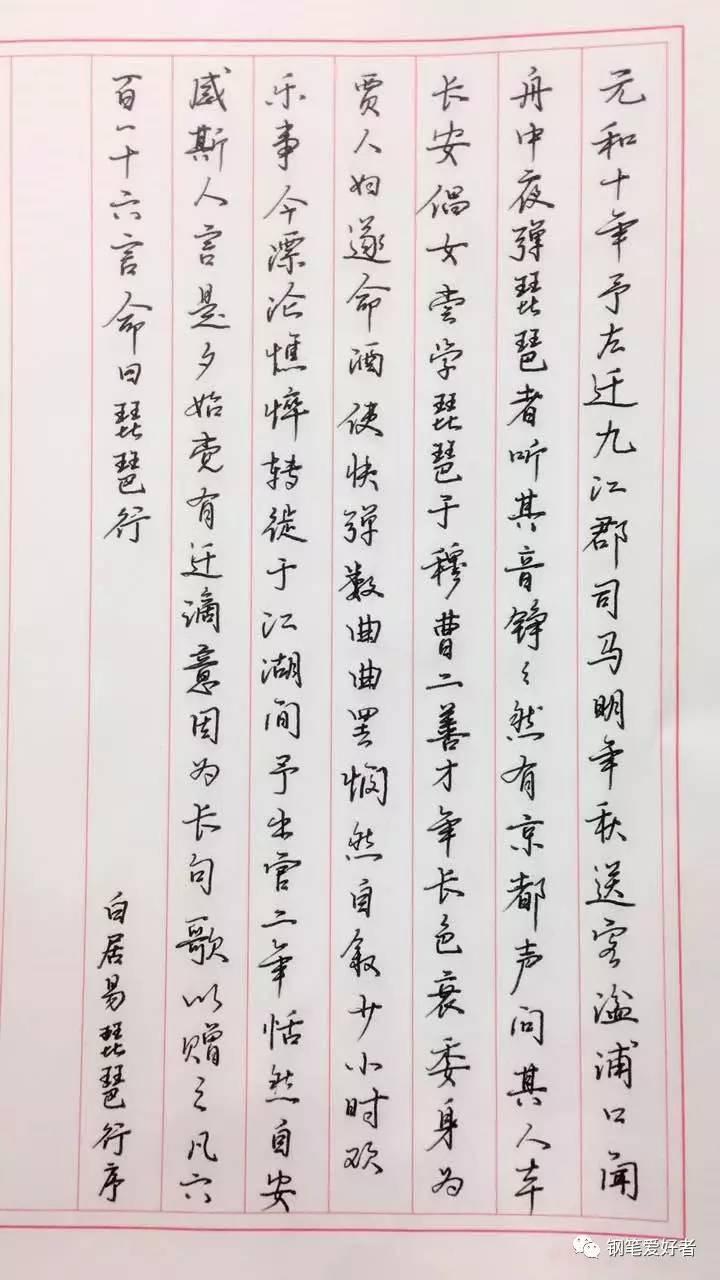 元和十年予左迁九江郡司马明年秋送客湓浦口闻
舟中夜弹琵琶者听其音铮々然有京都声问其人本
长安倡女尝学琵琶于穆曹二善才年长色衰委身为
贾人妇遂命酒使快弹数曲曲罢悯然自叙少小时欢
乐事今漂沦憔悴转徙于江湖间予出官二年恬然自安
感斯人言是夕始觉有迁谪意因为长句歌以赠之凡六
百一十六言命曰琵琶行
白居易琵琶行序
钢笔爱好者